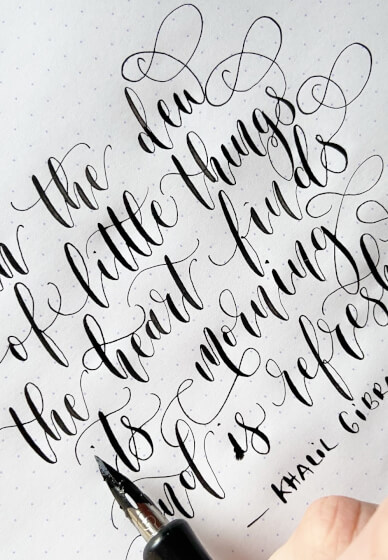 n the dew
of little things
the heart finds
its morning
and is refresh
— KHALIL GIBR